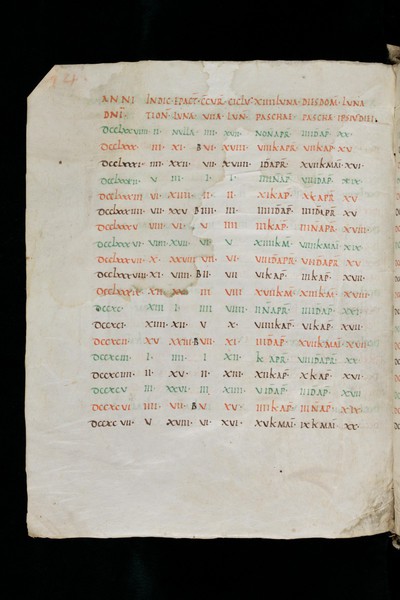 14.
ANNI INDIC EPACT CCUR CICLU XIIII LUNA DIES DOM LUNA
DNI TION LUNA VIIA LUN PASCHAE PASCHA IPSIUDIEI
DCCLXXVIIII II NULLA IIII XVII NON APR IIII D AP XX
DCCLXXX III XI B VI XVIII VIII K APR VII K AP XV
DCCLXXXI IIII XXII VII XVIIII ID APR XVII K MAI XVI
DCCLXXXII V III I I NAP VII ID AP XIX
DCCLXXXIII VI XIIII II II XI K AP X K APR XV
DCCLXXXIIII VII XXV B IIII III IIII ID AP III ID APR XV
DCCLXXXV VIII VI V IIII III K AP III N APR XVIII
DCCLXXXVI VIIII XVII VI V XIIII K M VIIII K MAI XIX
DCCLXXXVII X XXVIII VII VI VII ID APR VI ID AP XV
DCCLXXXVIII XI VIIII B II VII VI K AP IIII K AP XVII
XII III VIII XVII K M XIII K M XVIII
DCCXC XIII I IIII VIIII II N APR III ID AP XXI
DCCXCI XIIII XII V X VIIII K AP VI K AP XVII
DCCXCII XV XXIII B VII XI III ID AP XVII K MAI XVII
DCCXCIII I IIII I XII K APR VIII ID APR XX
DCCXCIIII II XV II XIII XII K AP X K AP XVI
DCCXCV III XXVI III XIIII V ID AP III ID AP XVII
DCCXCVI IIII VII B V XV IIII K AP III N AP XIX
DCCXCVII V XVIII VI XVI XV K MAI IX K MAI XX